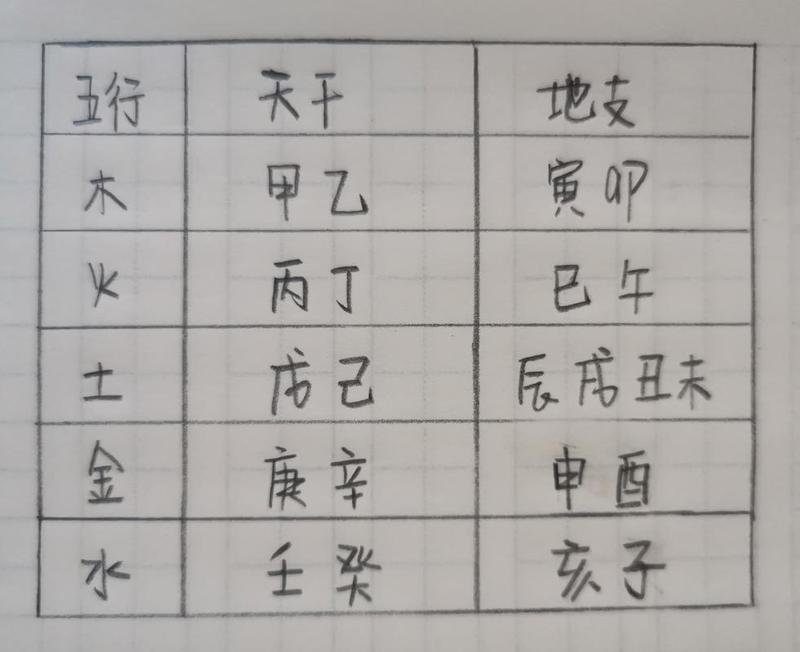 五行 天干 地支
木 甲乙 寅卯
火 丙丁 巳午
土 戊己 辰戌丑未
金 庚辛 申酉
水 壬癸 亥子